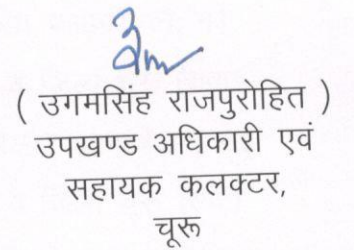 ( उगमसिंह राजपुरोहित )
उपखण्ड अधिकारी एवं
सहायक कलक्टर,
चूरू